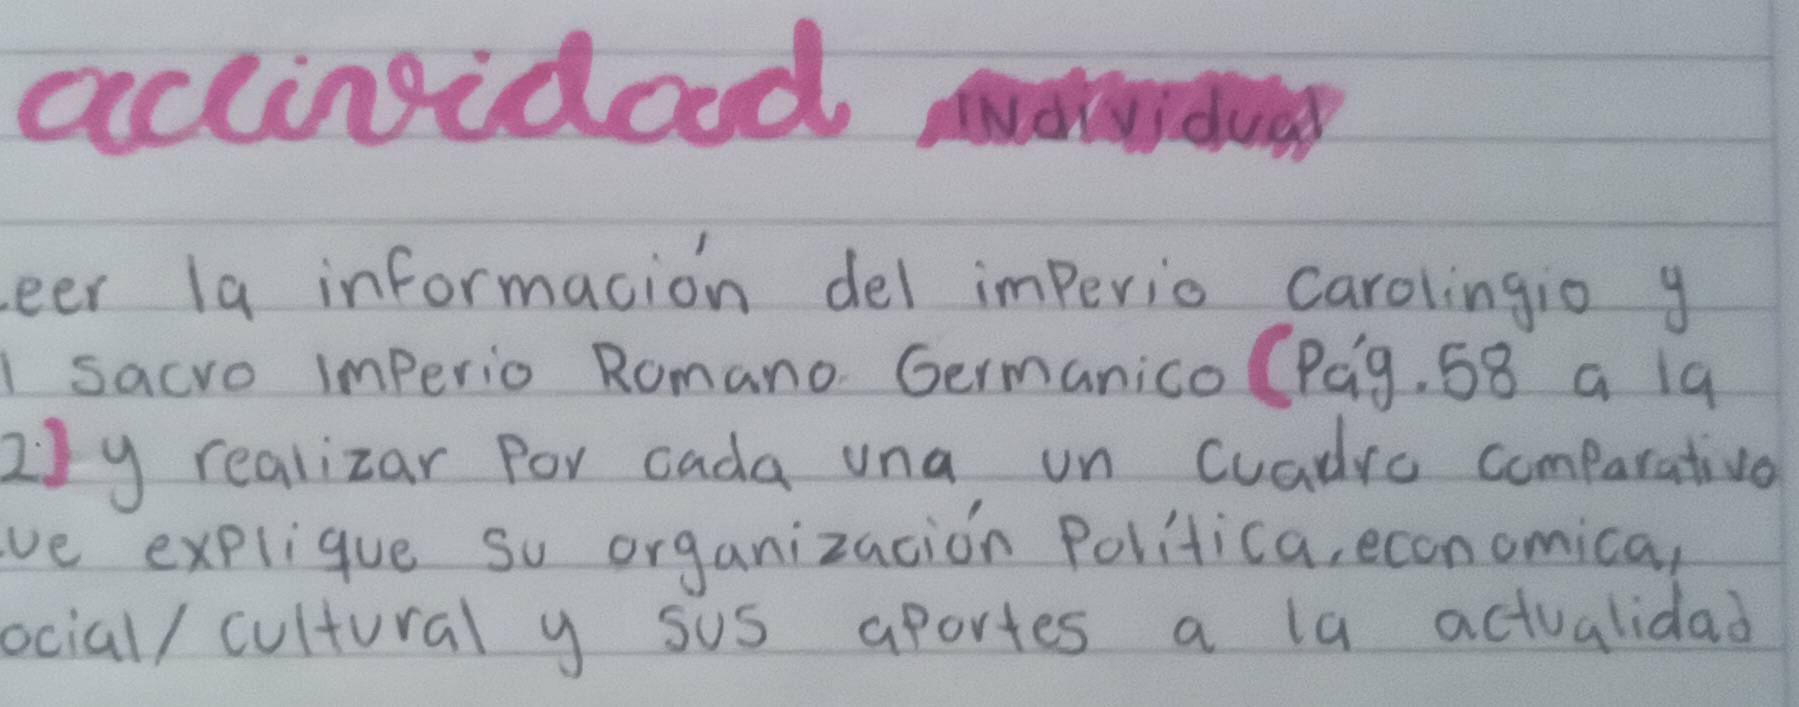 actividad individual
eer la información del imperio carolingio y
l sacro imperio Romano Germanico (Pág. 58 a la
2) y realizar Por cada una un cuadro comparativo
ue explique su organización Política, economica,
ocial/ cultural y sus aportes a la actualidad